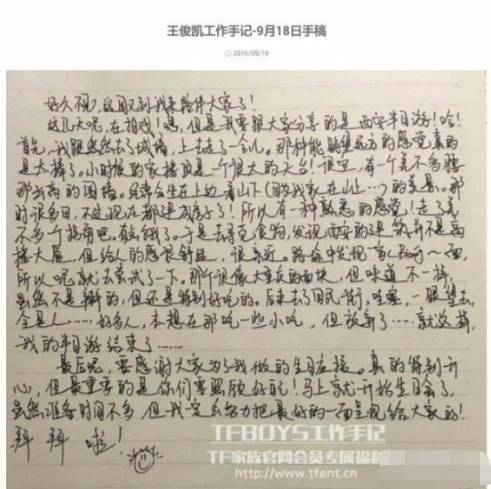 王俊凯工作手记-9月18日手稿
2016/09/19
好久不见，这周又到我来陪伴大家了！
这几天呢，在拍戏！嗯，但是我要跟大家分享的是西安半日游！哈！
首先，我跟爸爸去了城墙，上去走了一会儿。那种能眺望远方的感觉真的
是太棒了。小时候的家楼顶是一个很大的天台！很空，有一个差不多城
那么高的围墙。经常会坐在上边看山下（因为我家在山上…）的美景。那
时很多田，不过现在都建成房子了！所以有一种熟悉的感觉！走了差
不多个把小时吧，有点饿了。于是去寻觅食物，发现西安的建筑并不是高
楼大厦，但给人的感觉舒服，很亲近。路途中发现
所以呢就去尝试了一下。那个很像大重庆的面块，但味道不一样，
虽然不是辣的，但还是特别好吃的。后来去了回民街，哇塞，一眼望去
全是人……好多人，本想在那吃一些小吃，但放弃了……就这样，
我的半日游结束了……
最后呢，要感谢大家为了我做的生日应援。真的特别开
心，但最重要的是你们要照顾好自己！马上就开始生日会了，
虽然准备时间不多，但我一定会努力把最好的一面呈现给大家的！
拜拜啦！
TFBOYS工作手记
TF家族官网会员专属福利
http://www.tfent.cn